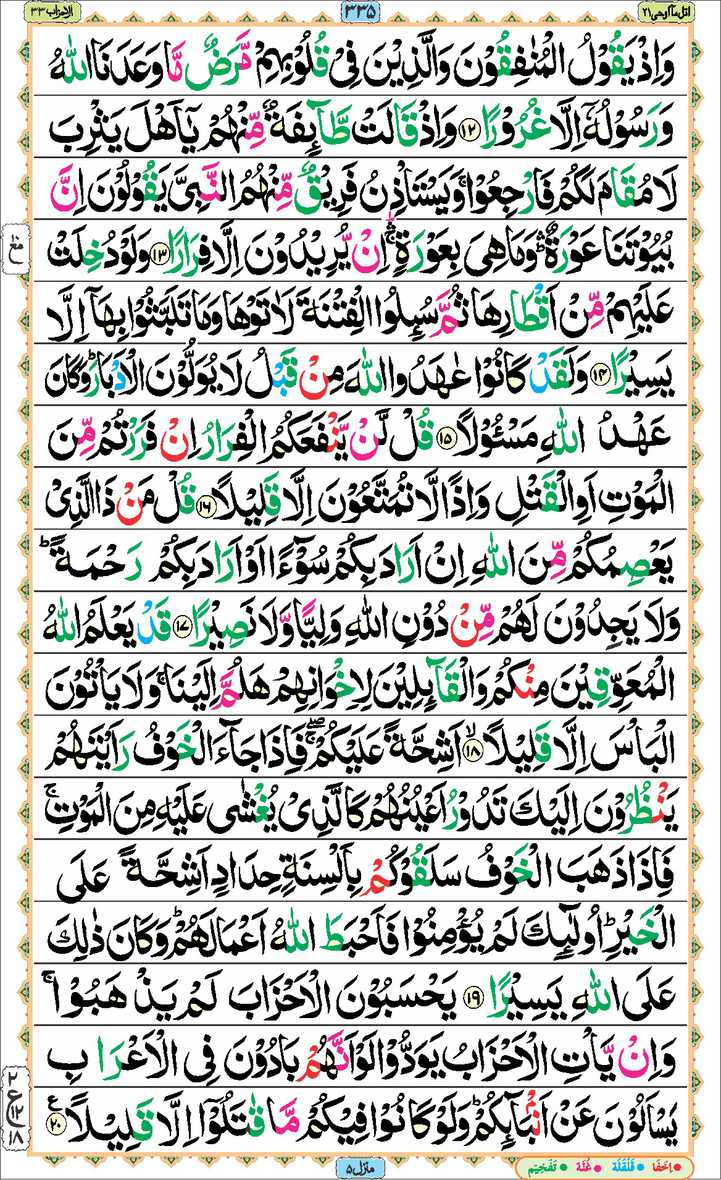 اتل مآ اوحی ۲۱
۳۳۵
الاحزاب ۳۳
وَاِذْ یَقُوْلُ الْمُنٰفِقُوْنَ وَالَّذِیْنَ فِیْ قُلُوْبِهِمْ مَّرَضٌ مَّا وَعَدَنَا اللّٰهُ
وَرَسُوْلُهٗۤ اِلَّا غُرُوْرًا ﴿۱۲﴾ وَاِذْ قَالَتْ طَّآئِفَةٌ مِّنْهُمْ یٰۤاَهْلَ یَثْرِبَ
لَا مُقَامَ لَكُمْ فَارْجِعُوْا ۚ وَیَسْتَاْذِنُ فَرِیْقٌ مِّنْهُمُ النَّبِیَّ یَقُوْلُوْنَ اِنَّ
بُیُوْتَنَا عَوْرَةٌ ۛؕ وَمَا هِیَ بِعَوْرَةٍ ۛۚ اِنْ یُّرِیْدُوْنَ اِلَّا فِرَارًا ﴿۱۳﴾ وَلَوْ دُخِلَتْ
عَلَیْهِمْ مِّنْ اَقْطَارِهَا ثُمَّ سُىِٕلُوا الْفِتْنَةَ لَاٰتَوْهَا وَمَا تَلَبَّثُوْا بِهَاۤ اِلَّا
یَسِیْرًا ﴿۱۴﴾ وَلَقَدْ كَانُوْا عَاهَدُوا اللّٰهَ مِنْ قَبْلُ لَا یُوَلُّوْنَ الْاَدْبَارَ ؕ وَكَانَ
عَهْدُ اللّٰهِ مَسْـُٔوْلًا ﴿۱۵﴾ قُلْ لَّنْ یَّنْفَعَكُمُ الْفِرَارُ اِنْ فَرَرْتُمْ مِّنَ
الْمَوْتِ اَوِ الْقَتْلِ وَاِذًا لَّا تُمَتَّعُوْنَ اِلَّا قَلِیْلًا ﴿۱۶﴾ قُلْ مَنْ ذَا الَّذِیْ
یَعْصِمُكُمْ مِّنَ اللّٰهِ اِنْ اَرَادَ بِكُمْ سُوْٓءًا اَوْ اَرَادَ بِكُمْ رَحْمَةً ؕ
وَلَا یَجِدُوْنَ لَهُمْ مِّنْ دُوْنِ اللّٰهِ وَلِیًّا وَّلَا نَصِیْرًا ﴿۱۷﴾ قَدْ یَعْلَمُ اللّٰهُ
الْمُعَوِّقِیْنَ مِنْكُمْ وَالْقَآئِلِیْنَ لِاِخْوَانِهِمْ هَلُمَّ اِلَیْنَا ۚ وَلَا یَاْتُوْنَ
الْبَاْسَ اِلَّا قَلِیْلًا ﴿۱۸﴾ۙ اَشِحَّةً عَلَیْكُمْ ۖۚ فَاِذَا جَآءَ الْخَوْفُ رَاَیْتَهُمْ
یَنْظُرُوْنَ اِلَیْكَ تَدُوْرُ اَعْیُنُهُمْ كَالَّذِیْ یُغْشٰی عَلَیْهِ مِنَ الْمَوْتِ ۚ
فَاِذَا ذَهَبَ الْخَوْفُ سَلَقُوْكُمْ بِاَلْسِنَةٍ حِدَادٍ اَشِحَّةً عَلَی
الْخَیْرِ ؕ اُولٰٓئِكَ لَمْ یُؤْمِنُوْا فَاَحْبَطَ اللّٰهُ اَعْمَالَهُمْ ؕ وَكَانَ ذٰلِكَ
عَلَی اللّٰهِ یَسِیْرًا ﴿۱۹﴾ یَحْسَبُوْنَ الْاَحْزَابَ لَمْ یَذْهَبُوْا ۚ
وَاِنْ یَّاْتِ الْاَحْزَابُ یَوَدُّوْا لَوْ اَنَّهُمْ بَادُوْنَ فِی الْاَعْرَابِ
یَسْاَلُوْنَ عَنْ اَنْۢبَآئِكُمْ ؕ وَلَوْ كَانُوْا فِیْكُمْ مَّا قٰتَلُوْۤا اِلَّا قَلِیْلًا ﴿۲۰﴾ ع
۲
ع ۱۲
۱۸
منزل ۵
اِخفَا قَلْقَلَه غُنَّه تَفْخِیْم